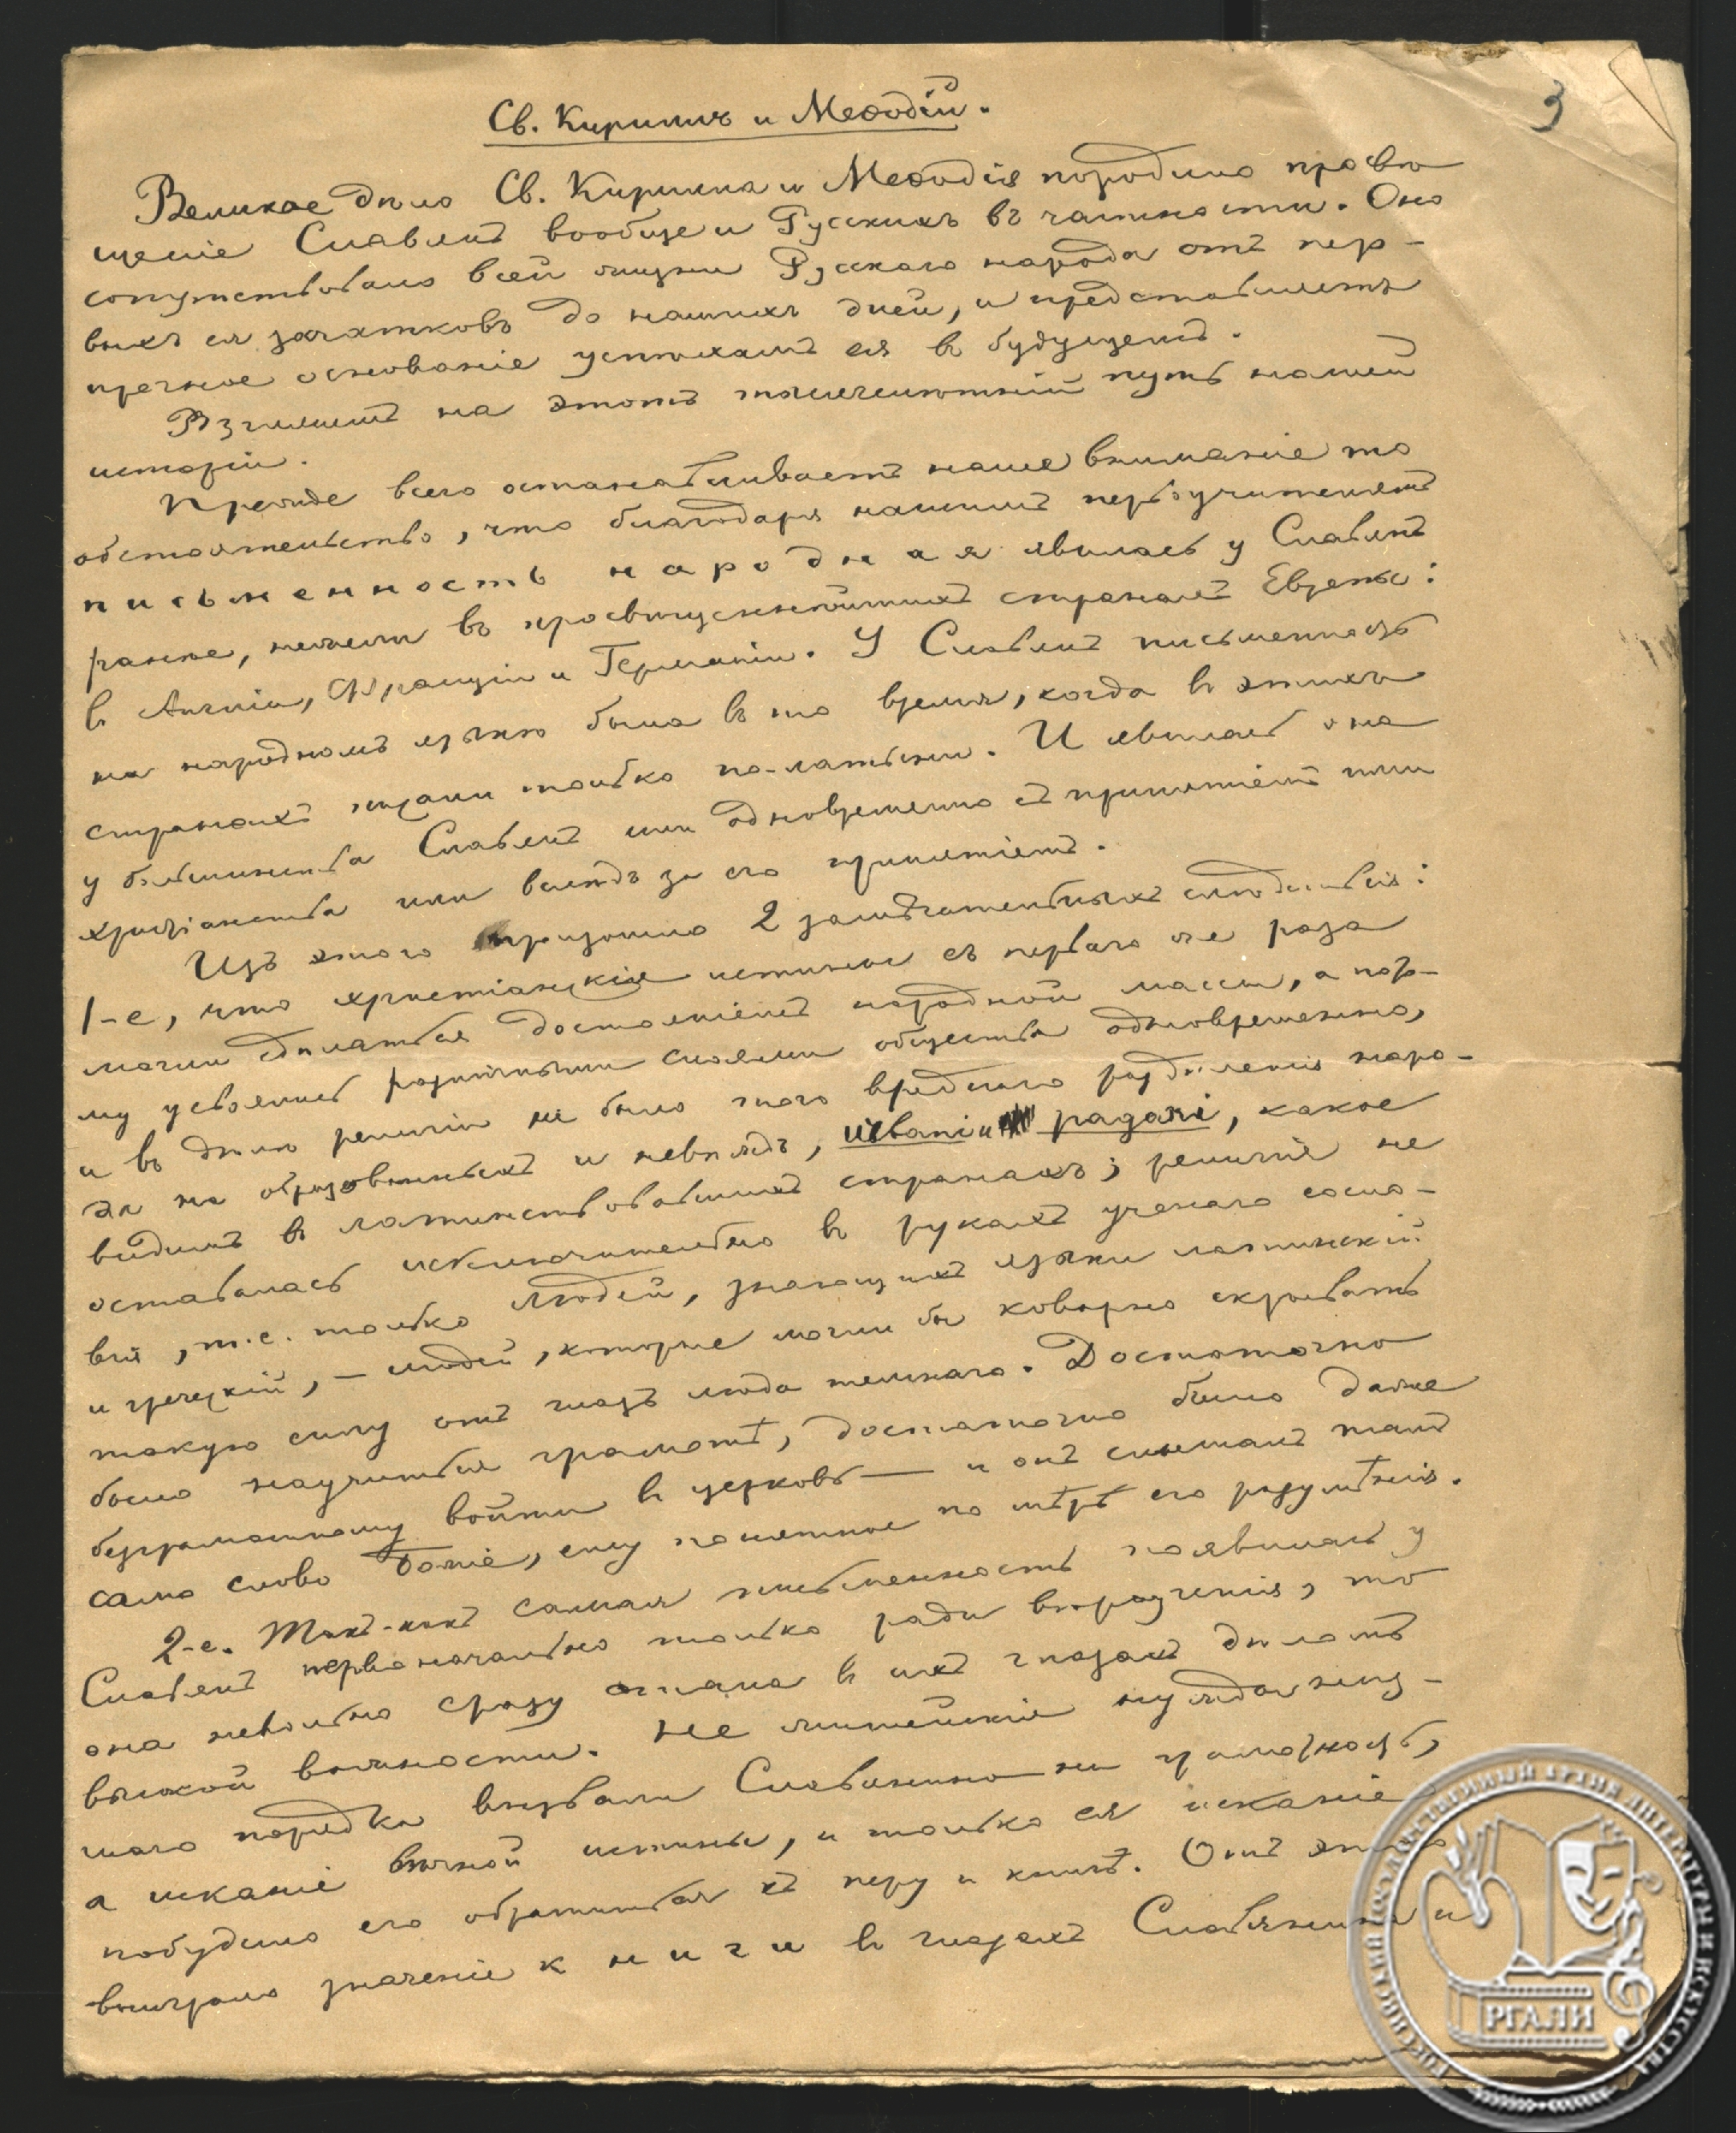 3
Св. Кириллъ и Меѳодій.
Великое дѣло Св. Кирилла и Меѳодія породило просвѣ
щеніе Славянъ вообще и Русскихъ въ частности. Оно
сопутствовало всей жизни Русскаго народа отъ пер-
выхъ ея зачатковъ до нашихъ дней, и представляетъ
прочное основаніе успѣхамъ ея въ будущемъ.
Взглянемъ на этотъ тысячелѣтній путь нашей
исторіи.
Прежде всего останавливаетъ наше вниманіе то
обстоятельство, что благодаря нашимъ первоучителямъ
письменность народная явилась у Славянъ
ранѣе, нежели въ просвѣщеннѣйшихъ странахъ Европы:
въ Англіи, Франціи и Германіи. У Славянъ письменность
на народномъ языкѣ была въ то время, когда въ этихъ
странахъ писали только по-латыни. И явилась она
у большинства Славянъ или одновременно съ принятіемъ ими
христіанства или вслѣдъ за его принятіемъ.
Изъ этого произошло 2 замѣчательныхъ слѣдствія:
1-е, что христіанскія истины съ перваго же раза
могли сдѣлаться достояніемъ народной массы, а пото-
му усвоялись различными слоями общества одновременно,
и въ дѣлѣ религіи не было того вреднаго раздѣленія наро-
да на образованныхъ и невѣждъ, christiani и pagani, какое
видимъ въ латинствовавшихъ странахъ; религія не
оставалась исключительно въ рукахъ ученаго сосло-
вія, т.е. только людей, знающихъ языки латинскій
и греческій, — людей, которые могли бы коварно скрывать
такую силу отъ глазъ люда темнаго. Достаточно
было научиться грамотѣ, достаточно было даже
безграмотному войти въ церковь — и онъ слышалъ тамъ
само слово Божіе, ему понятное по мѣрѣ его разумѣнія.
2-е. Такъ-какъ самая письменность появилась у
Славянъ первоначально только ради вѣроученія, то
она невольно сразу стала въ ихъ глазахъ дѣломъ
высокой важности. Не житейскія нужды низ-
шаго порядка вызвали Славянина на грамотность,
а исканіе вѣчной истины, и только ея исканіе
побудило его обратиться къ перу и книгѣ. Отъ этого
выиграло значеніе книги въ глазахъ Славянина и
РОССИЙСКИЙ ГОСУДАРСТВЕННЫЙ АРХИВ ЛИТЕРАТУРЫ И ИСКУССТВА
РГАЛИ